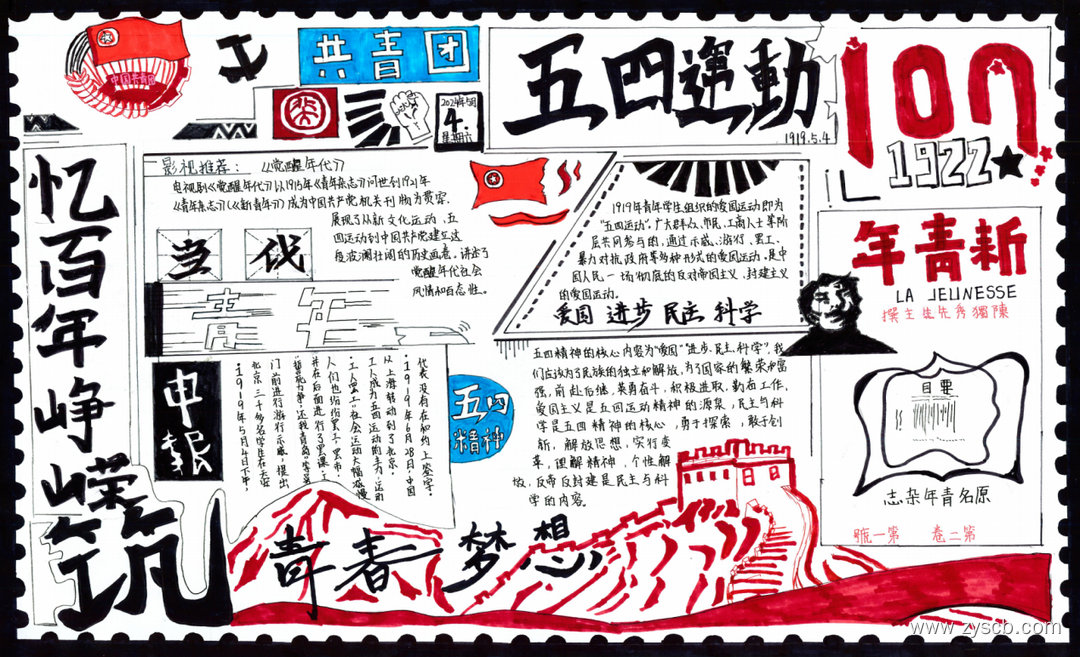 中国共青团
共青团
五四運動
1919.5.4
2024年5月
4.
星期六
100
1922
忆百年峥嵘
筑
青春梦想
影视推荐：《觉醒年代》
电视剧《觉醒年代》以1915年《青年杂志》问世到1921年
《青年杂志》(《新青年》)成为中国共产党机关刊物为贯穿，
展现了从新文化运动、五
四运动到中国共产党建立这
段波澜壮阔的历史画卷，讲述了
觉醒年代社会
风情和百态性。
当代
青年
1919年青年学生组织的爱国运动即为
“五四运动”，广大群众、市民、工商人士等阶
层共同参与的，通过示威、游行、罢工、
暴力对抗政府等多种形式的爱国运动。是中
国人民一场彻底的反对帝国主义、封建主义
的爱国运动。
爱国 进步 民主 科学
年青新
LA JEUNESSE
撰主生先秀獨陳
目要
志杂年青名原
號一第 卷二第
申報
·1919年5月4日下午，
北京三千多名学生在天安
门前进行游行示威，提出
并在后面进行了罢课、工
人们也纷纷罢工、罢市，
“工人罢工”社会运动大幅
工人成为五四运动的主力，运动
从上海转动到了北京。
·1919年6月28日，中国
代表没有在和约上签字。
五四
精神
五四精神的核心内容为“爱国”“进步、民主、科学”，我
们应该为了民族的独立和解放，为了国家的繁荣和富
强，前赴后继，英勇奋斗，积极进取，勤奋工作，
爱国主义是五四运动精神的源泉，民主与科
学是五四精神的核心，勇于探索，敢于创
新，解放思想，实行变
革，理解精神，个性解
放，反帝反封建是民主与科
学的内容。
www.zyscb.com